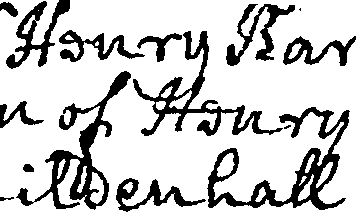 Henry Bar
n of Henry
ildenhall